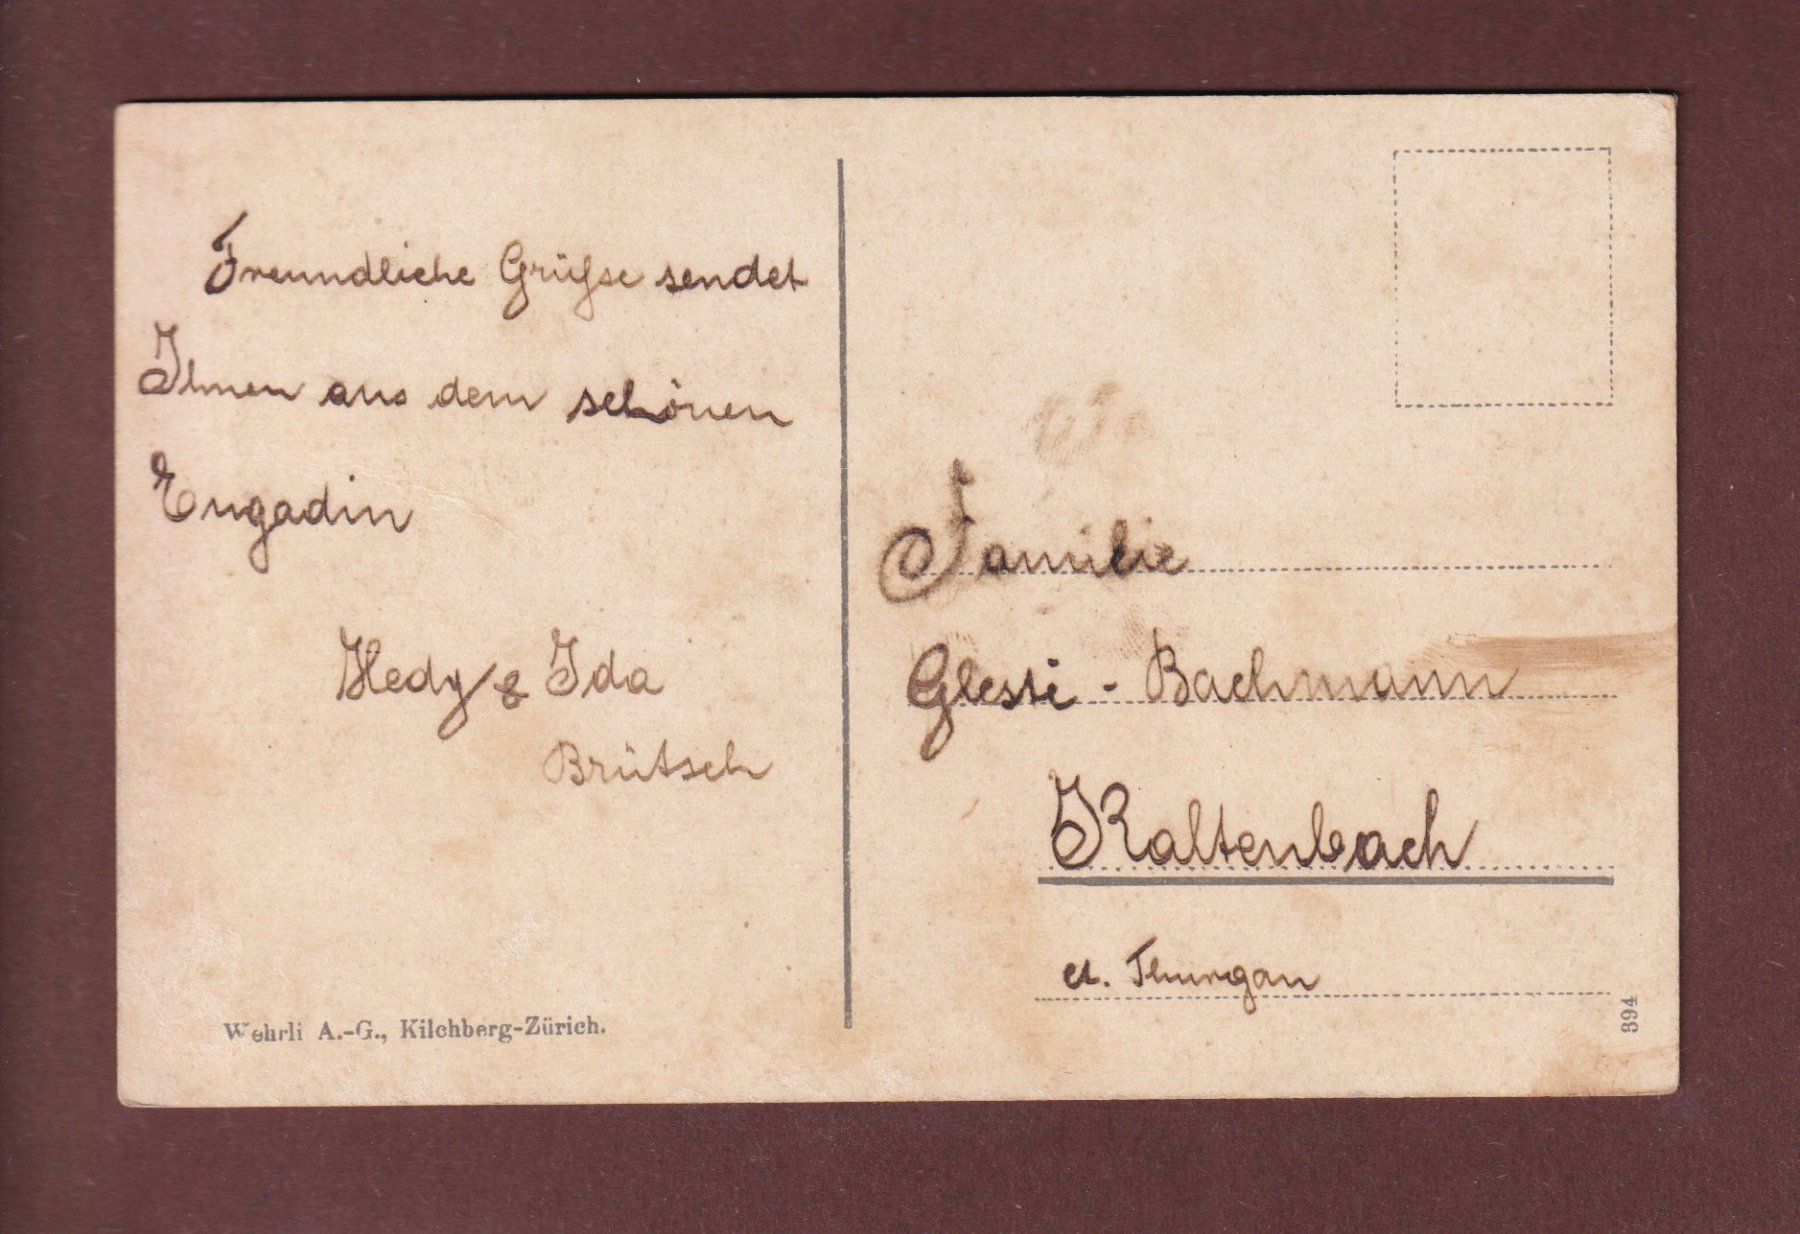 Freundliche Grüsse sendet
Ihnen aus dem schönen
Engadin
Hedy & Ida
Brütsch
Wehrli A.-G., Kilchberg-Zürich.
Familie
Glesti - Bachmann
Kaltenbach
ct. Thurgau
394